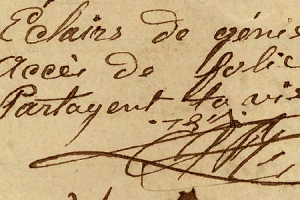 Éclairs de génie
Accès de folie
Partagent ta vie